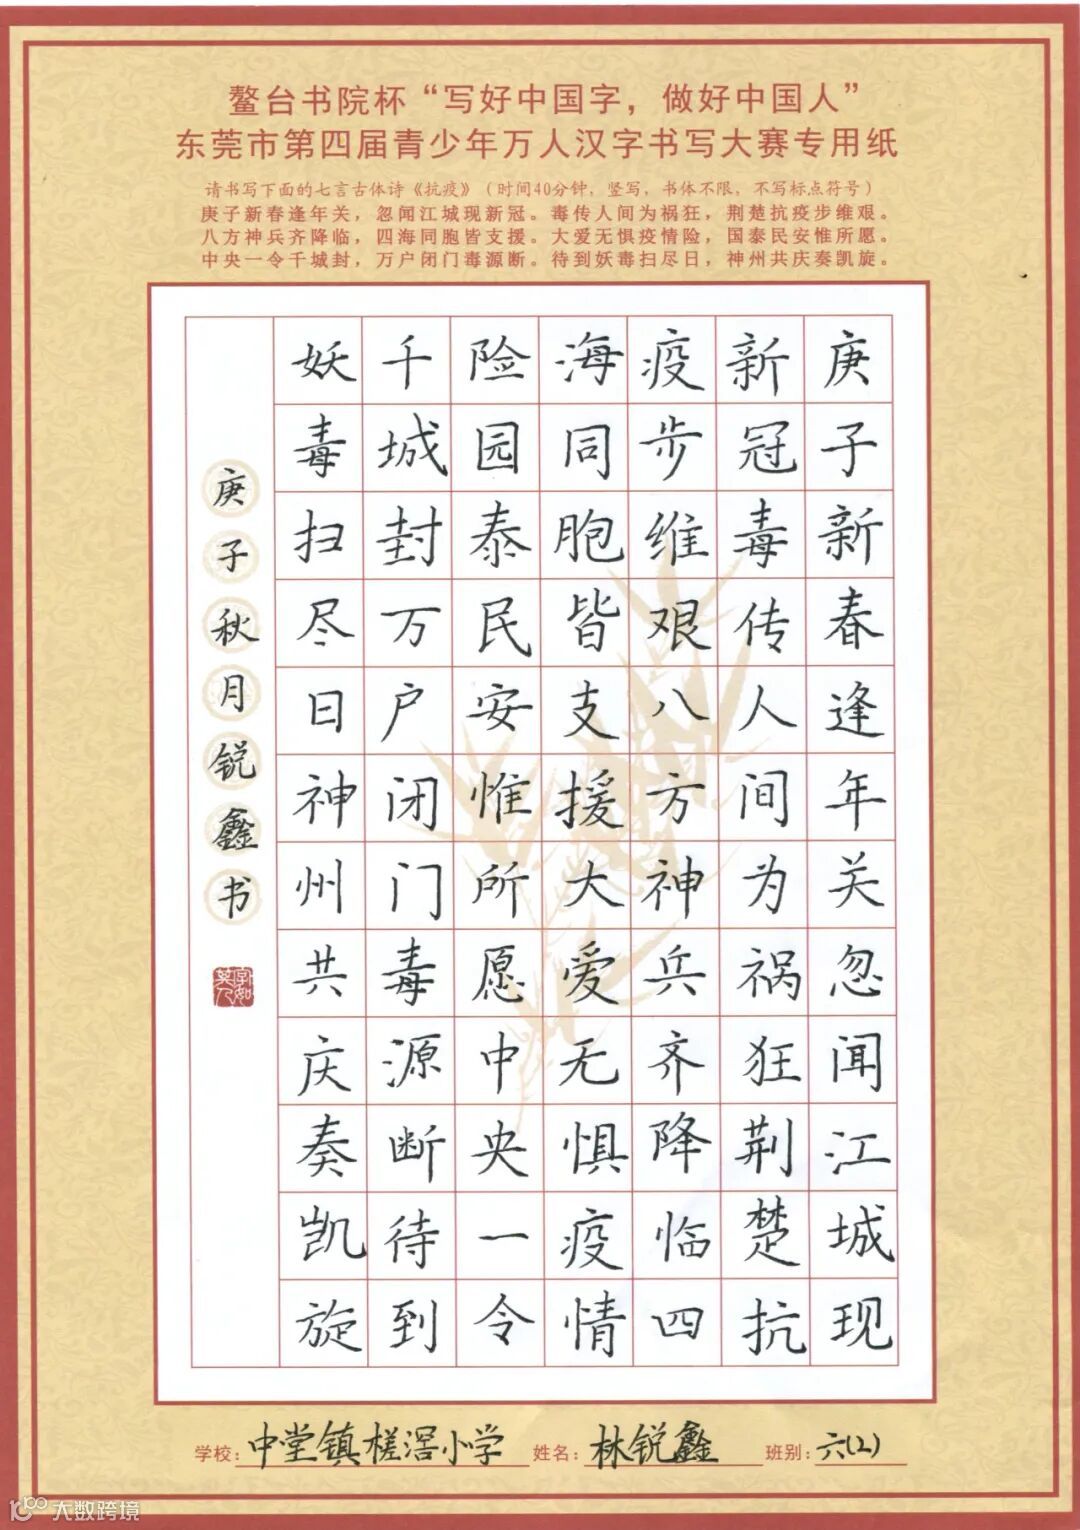 鳌台书院杯“写好中国字，做好中国人”
东莞市第四届青少年万人汉字书写大赛专用纸
请书写下面的七言古体诗《抗疫》（时间40分钟，竖写，书体不限，不写标点符号）
庚子新春逢年关，忽闻江城现新冠。毒传人间为祸狂，荆楚抗疫步维艰。
八方神兵齐降临，四海同胞皆支援。大爱无惧疫情险，国泰民安惟所愿。
中央一令千城封，万户闭门毒源断。待到妖毒扫尽日，神州共庆奏凯旋。
庚子新春逢年关忽闻江城现
新冠毒传人间为祸狂荆楚抗
疫步维艰八方神兵齐降临四
海同胞皆支援大爱无惧疫情
险园泰民安惟所愿中央一令
千城封万户闭门毒源断待到
妖毒扫尽日神州共庆奏凯旋
庚子秋月锐鑫书
字如其人
学校：中堂镇槎滘小学 姓名：林锐鑫 班别：六(2)
大数跨境